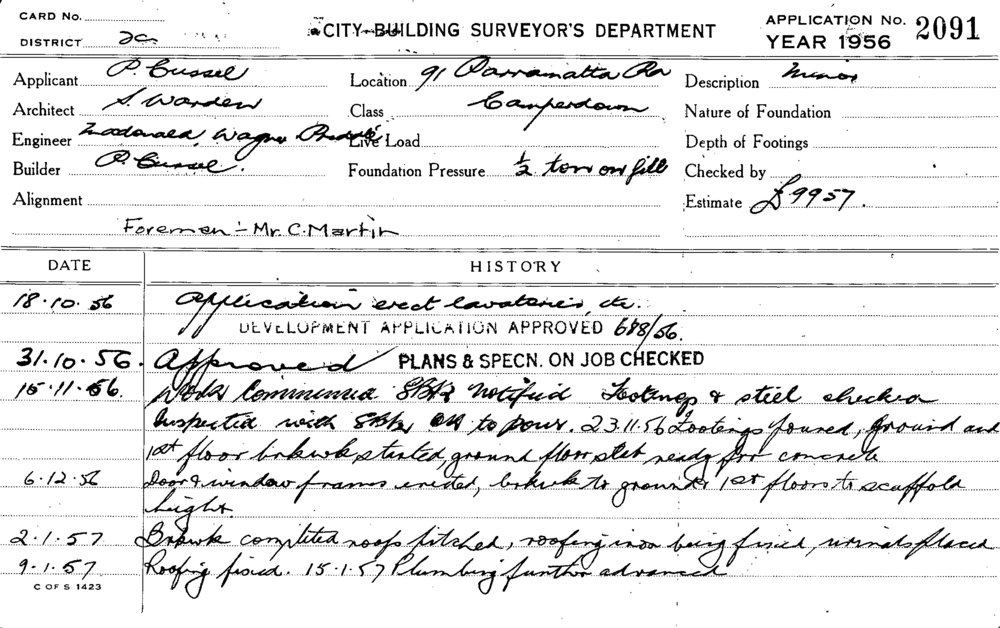 CARD No.
CITY BUILDING SURVEYOR'S DEPARTMENT
APPLICATION No. 2091
DISTRICT
YEAR 1956
Applicant P. Cussel Location 91 Parramatta Rd Description Minor
Architect S. Warden Class Camperdown Nature of Foundation
Engineer Macdonald, Wagner Priddle Live Load Depth of Footings
Builder P. Cussel. Foundation Pressure ½ ton on fill Checked by
Alignment Estimate £9957.
Foreman - Mr. C. Martin
DATE HISTORY
18.10.56 Application erect lavatories, etc.
DEVELOPMENT APPLICATION APPROVED 688/56.
31.10.56. Approved PLANS & SPECN. ON JOB CHECKED
15.11.56. Work Commenced notified Footings & steel checked
Inspected with OK to pour. 23.11.56 Footings poured, ground and
1st floor brkwk started, ground floor slab ready for concrete
6.12.56 Door & window frames erected, brkwk to ground & 1st floors to scaffold
height.
2.1.57 Brkwk completed roofs pitched, roofing iron being fixed, urinals placed
9.1.57 Roofing fixed. 15.1.57 Plumbing further advanced
C OF S 1423